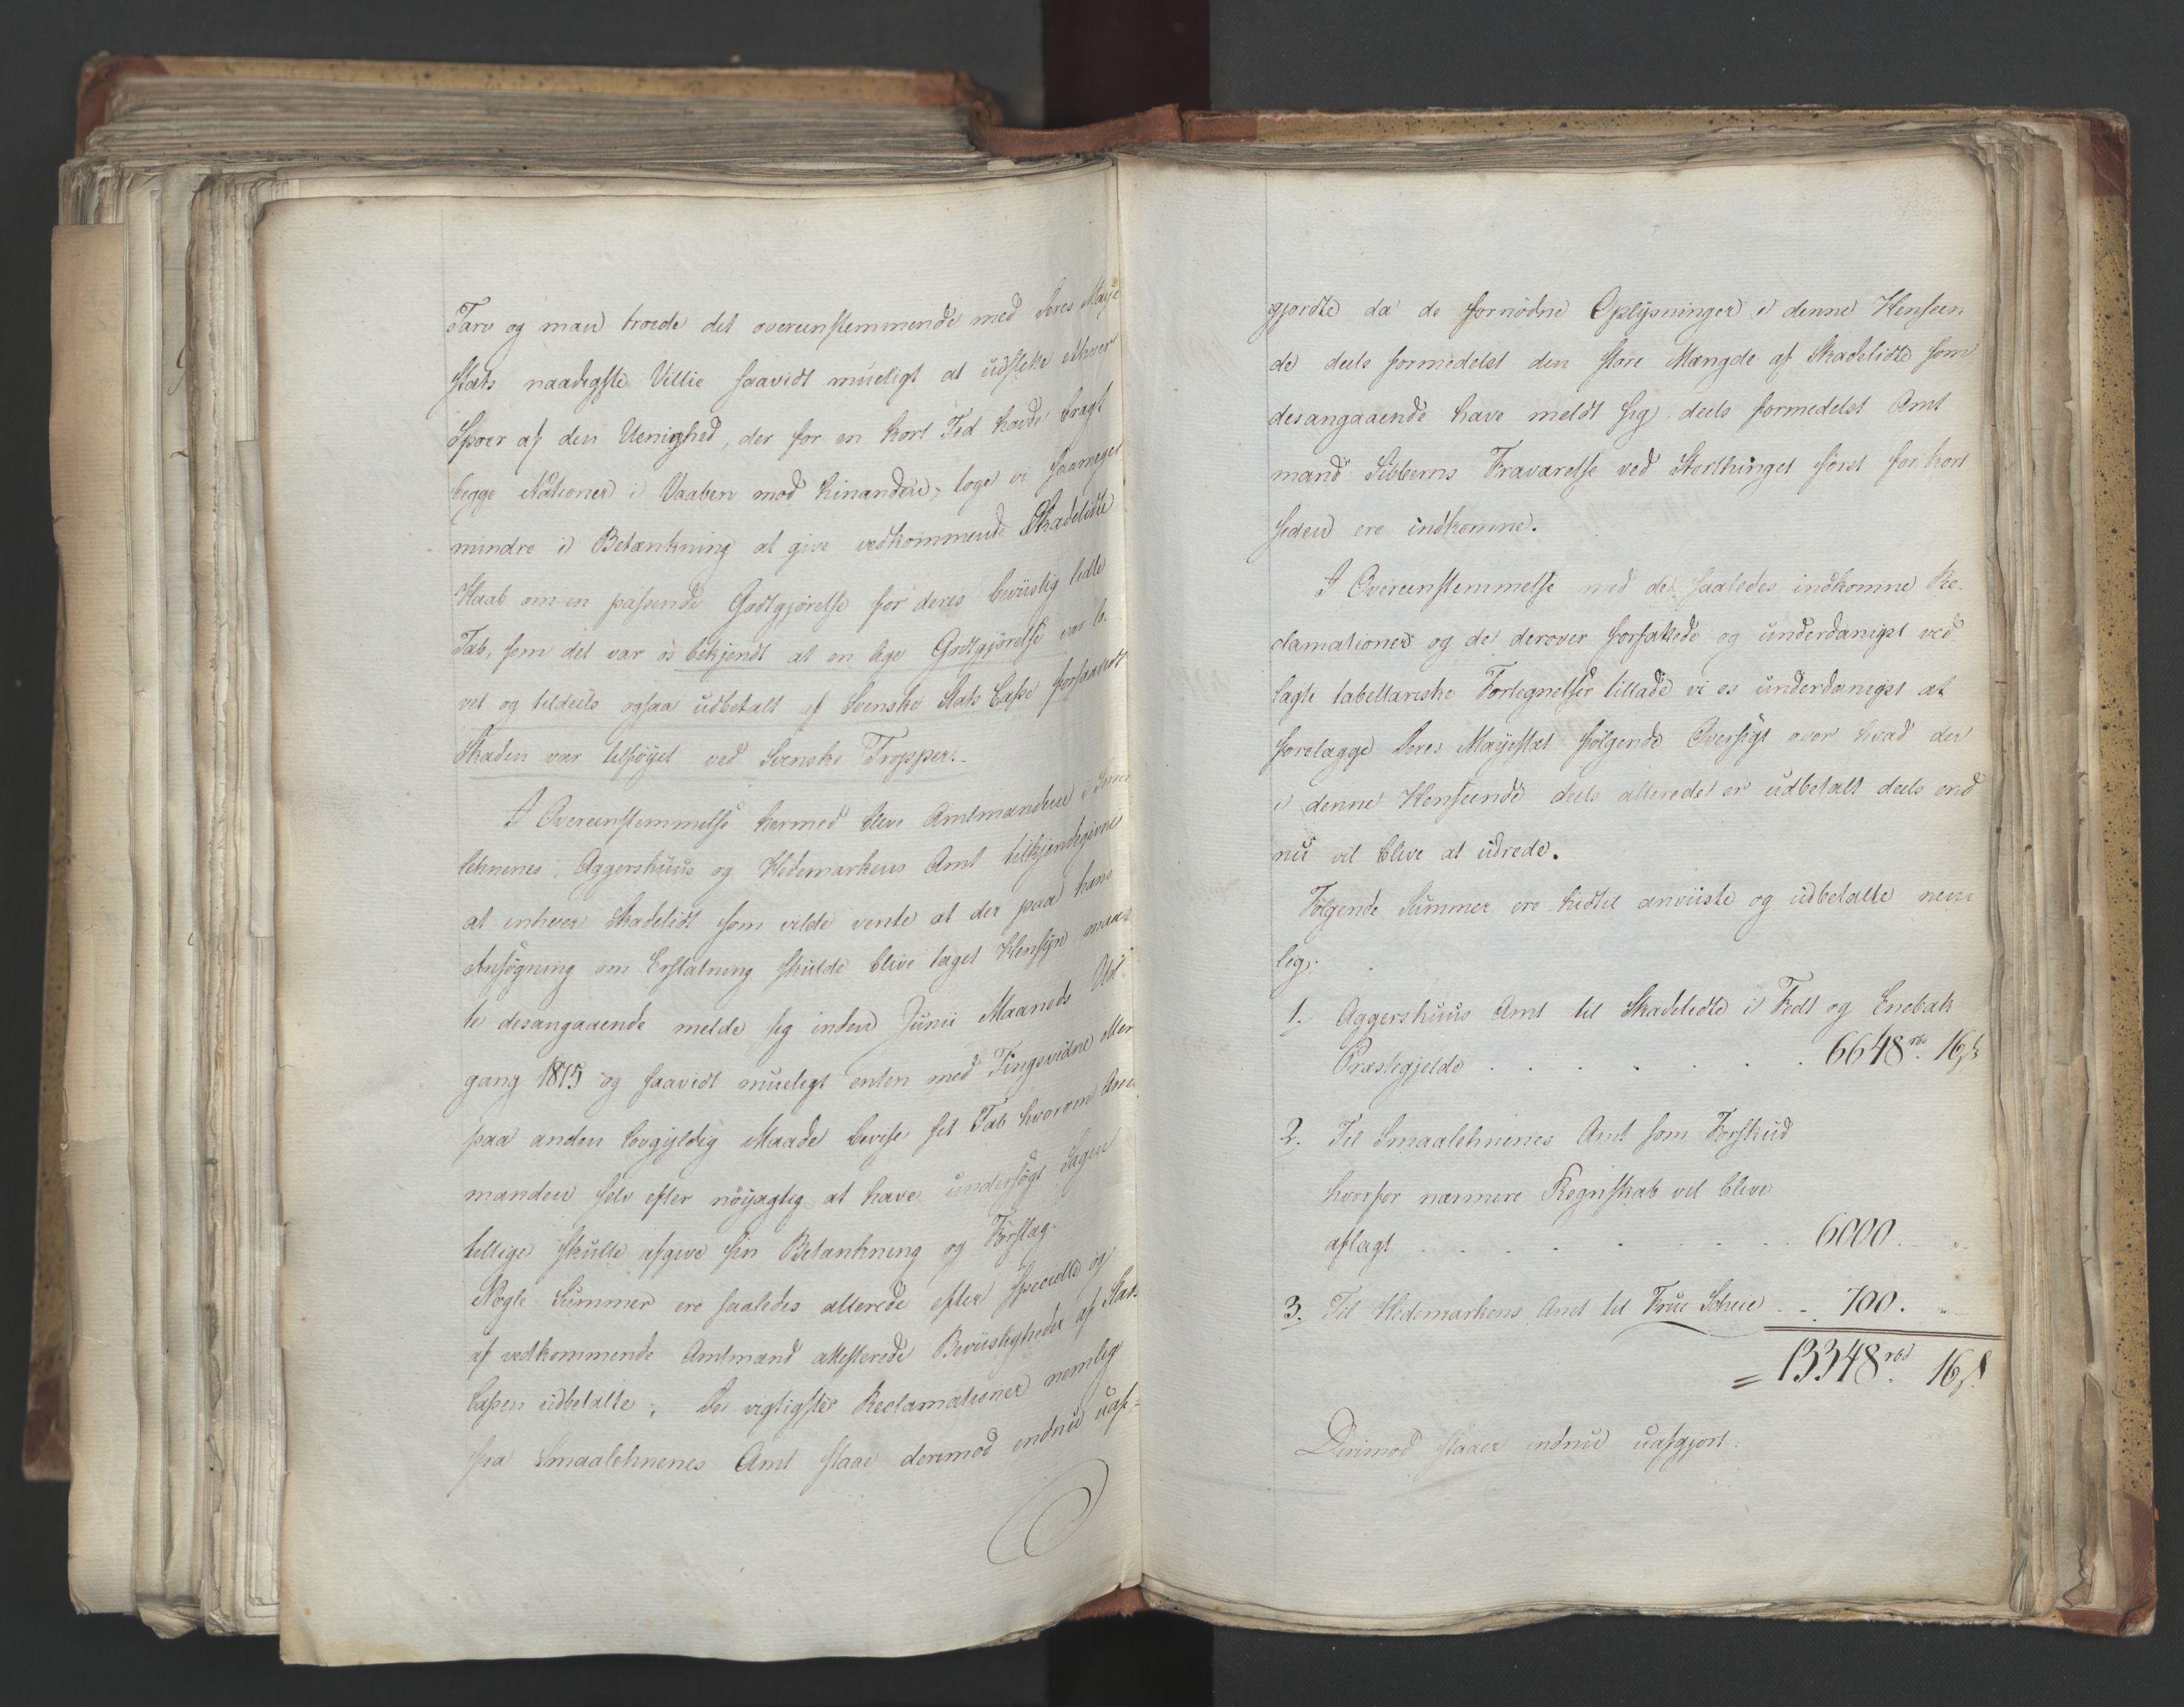 Tarv og man troede det overeensstemmende med Deres Maje
stæts naadigste Villie saavidt mueligt at udslette ethvert
Spoer af den Uenighed, der for en kort Tid havde bragt
begge Nationer i Vaaben mod hinanden, toge vi saameget
mindre i Betænkning at give vedkommende Skadelidte
Haab om en passende Godtgjørelse for deres beviislig lidte
Tab, som det var os bekjendt at en lige Godtgjørelse var lo-
vet og tildeels ogsaa udbetalt af Svenske Stats Casse forsaavidt
Skaden var tilføyet ved Svenske Tropper.
I Overeensstemmelse hermed bleve Amtmanden i Smaa
lehnenes, Aggershuus og Hedemarkens Amt tilkjendegivne
at enhver Skadelidt som vilde vente at der paa hans
Ansøgning om Erstatning skulde blive taget Hensyn maat
te desangaaende melde sig inden Junii Maaneds Ud
gang 1815 og saavidt mueligt enten med Tingsvidne eller
paa anden lovgyldig Maade bevise sit Tab hvorom Amt
manden selv efter nöyagtig at have undersøgt Sagen
tillige skulle afgive sin Betænkning og Forslag.
Nogle Summer ere saaledes allerede efter specielle og
af vedkommende Amtmand attesterede Beviisligheder af Stats
Cassen udbetalte; De vigtigste Reclamationer nemlig
fra Smaalehnenes Amt staae derimod endnu uaf-
gjordte da de fornødne Oplysninger i denne Henseen
de deels formedelst den store Mængde af Skadelidte som
desangaaende have meldt sig, deels formedelst Amt
mand Sibberns Fraværelse ved Storthinget først for kort
siden ere indkomne.
I Overeensstemmelse med de saaledes indkomne Re-
clamationer og de derover forfattede og underdanigst ved
lagte tabellariske Fortegnelser tillade vi os underdanigst at
forelægge Deres Mayestæt følgende Oversigt over hvad der
i denne Henseende deels allerede er udbetalt deels end
nu vil blive at udrede.
Følgende Summer ere hidtil anviiste og udbetalte nem
lig:
1. Aggershuus Amt til Skadelidte i Fedt og Enebak
Præstegjelde . . . . . . 6648 rbd. 16 s
2. Til Smaalehnenes Amt som Forskud
hvorfor nærmere Regnskab vil blive
aflagt . . . . . . . 6000. "
3. Til Hedemarkens Amt til Frue Scheie . . 700. "
= 13348 rbd. 16 s.
Derimod staaer endnu uafgjort: